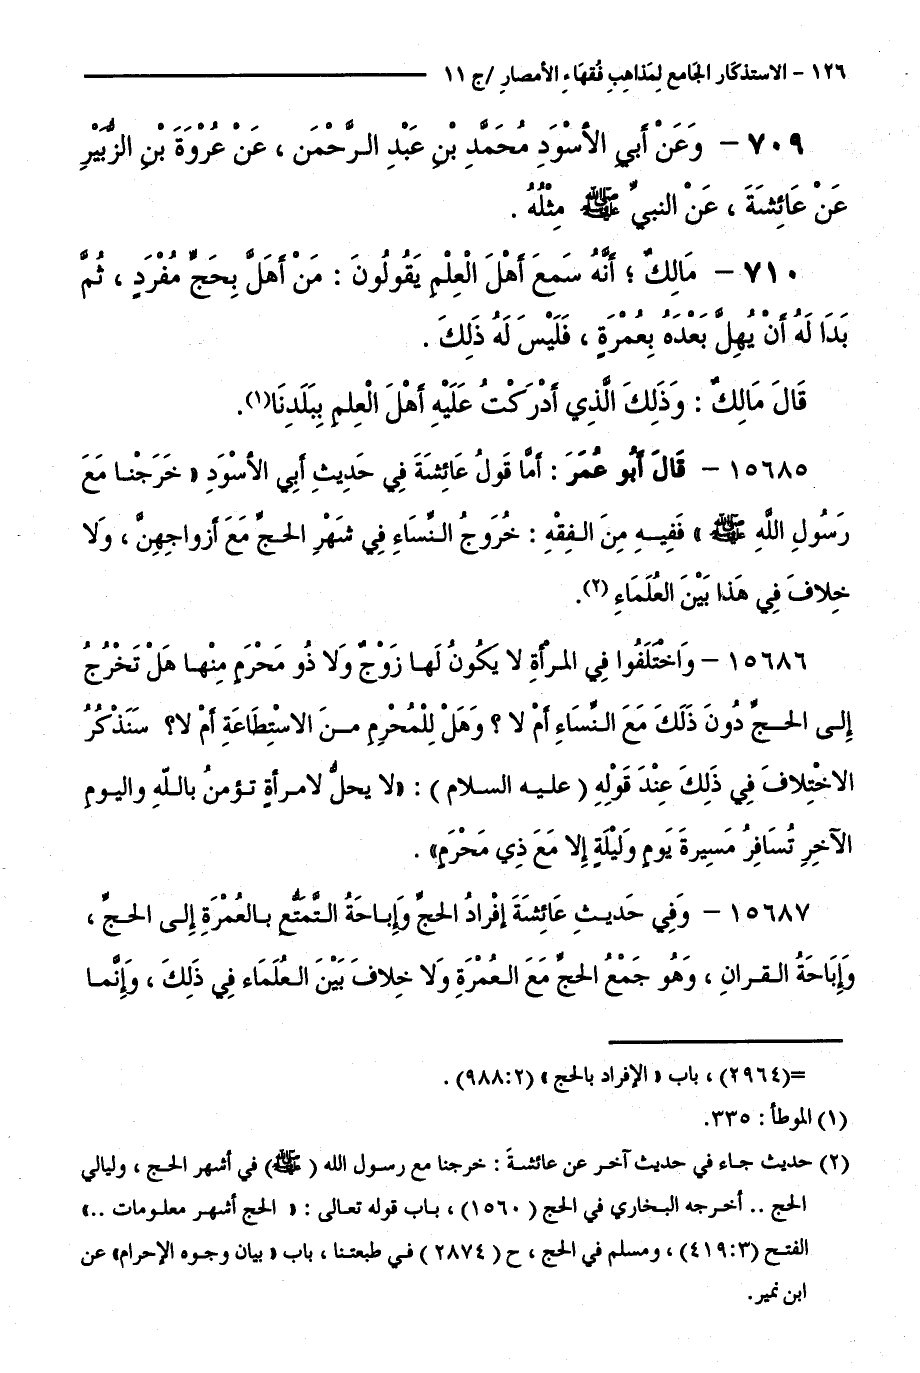 ١٢٦ - الاستذكار الجَامع لِمَذاهبِ فُقهَاءِ الأمصارِ /ج ١١
٧٠٩ - وَعَنْ أبي الأسْوَدِ مُحَمَّدِ بْنِ عَبْدِ الرَّحْمَنِ ، عَنْ عُرْوَةَ بْنِ الزُّبَيْرِ
عَنْ عَائِشَةَ ، عَنْ النبيِّ ﷺ مِثْلُهُ .
٧١٠ - مَالِكٌ ؛ أنَّهُ سَمعَ أهْلَ الْعِلْمِ يَقُولُونَ : مَنْ أهَلَّ بِحَجٍّ مُفْرَدٍ ، ثُمَّ
بَدَا لَهُ أنْ يُهِلَّ بَعْدَهُ بِعُمْرَةٍ ، فَلَيْسَ لَهُ ذَلِكَ .
قَالَ مَالِكٌ : وَذَلِكَ الَّذِي أدْرَكْتُ عَلَيْهِ أهْلَ الْعِلمِ بِبَلَدِنَا(١).
١٥٦٨٥ - قَالَ أبُو عُمَرَ : أمَّا قَولُ عَائِشَةَ فِي حَدِيثِ أبِي الأسْوَدِ « خَرَجْنـا مَعَ
رَسُولِ اللَّهِ ﷺ » فَفِيـهِ مِنَ الـفِقْهِ : خُرُوجُ النِّسَاءِ فِي شَهْرِ الحـجِّ مَعَ أزواجِهِنَّ ، وَلا
خِلافَ فِي هَذا بَيْنَ العُلَمَاءِ (٢).
١٥٦٨٦ - وَاخْتَلَفُوا فِي المرأةِ لا يَكُونُ لَهـا زَوْجٌ وَلا ذُو مَحْرَمٍ مِنْها هَلْ تَخْرُجُ
إلى الحـجِّ دُونَ ذَلكَ مَعَ النِّسَاءِ أمْ لا ؟ وَهَلْ لِلْمُحْرِمِ مـنَ الاسْتِطَاعَةِ أمْ لا؟ سَنَذْكُرُ
الاخْتِلافَ فِي ذَلِكَ عِنْدَ قَوْلِهِ ( عليـه السـلام ) : «لا يحلُّ لامـرأةٍ تـؤمنُ باللّهِ واليـومِ
الآخرِ تُسَافِرُ مَسِيرةَ يَومٍ وَلَيْلَةٍ إلا مَعَ ذِي مَحْرَمٍ» .
١٥٦٨٧ - وَفِي حَديثِ عَائِشَةَ إفْرادُ الحجِّ وَإباحَةُ التَّمتُّعِ بـالعُمْرَةِ إلـى الحـجِّ ،
وَإبَاحَةُ الـقـرانِ ، وَهُو جَمْعُ الحجِّ مَعَ الـعُمْرَةِ وَلا خلافَ بَيْنَ الـعُلَمَاء فِي ذَلِكَ ، وَإنَّمـا
=(٢٩٦٤) ، باب « الإفراد بالحج » (٩٨٨:٢) .
(١) الموطأ : ٣٣٥.
(٢) حديث جـاء في حديث آخـر عن عائشـةَ : خرجنا مع رسول الله (ﷺ) في أشهر الحـج ، وليالي
الحج .. أخـرجه البـخاري في الحج (١٥٦٠) ، بـاب قوله تعـالى : « الحج أشهـر معلـومات ..»
الفتـح (٤١٩:٣) ، ومسلم في الحج ، ح (٢٨٧٤) فـي طبعتنـا ، باب « بيان وجـوه الإحرام» عن
ابن نمير.